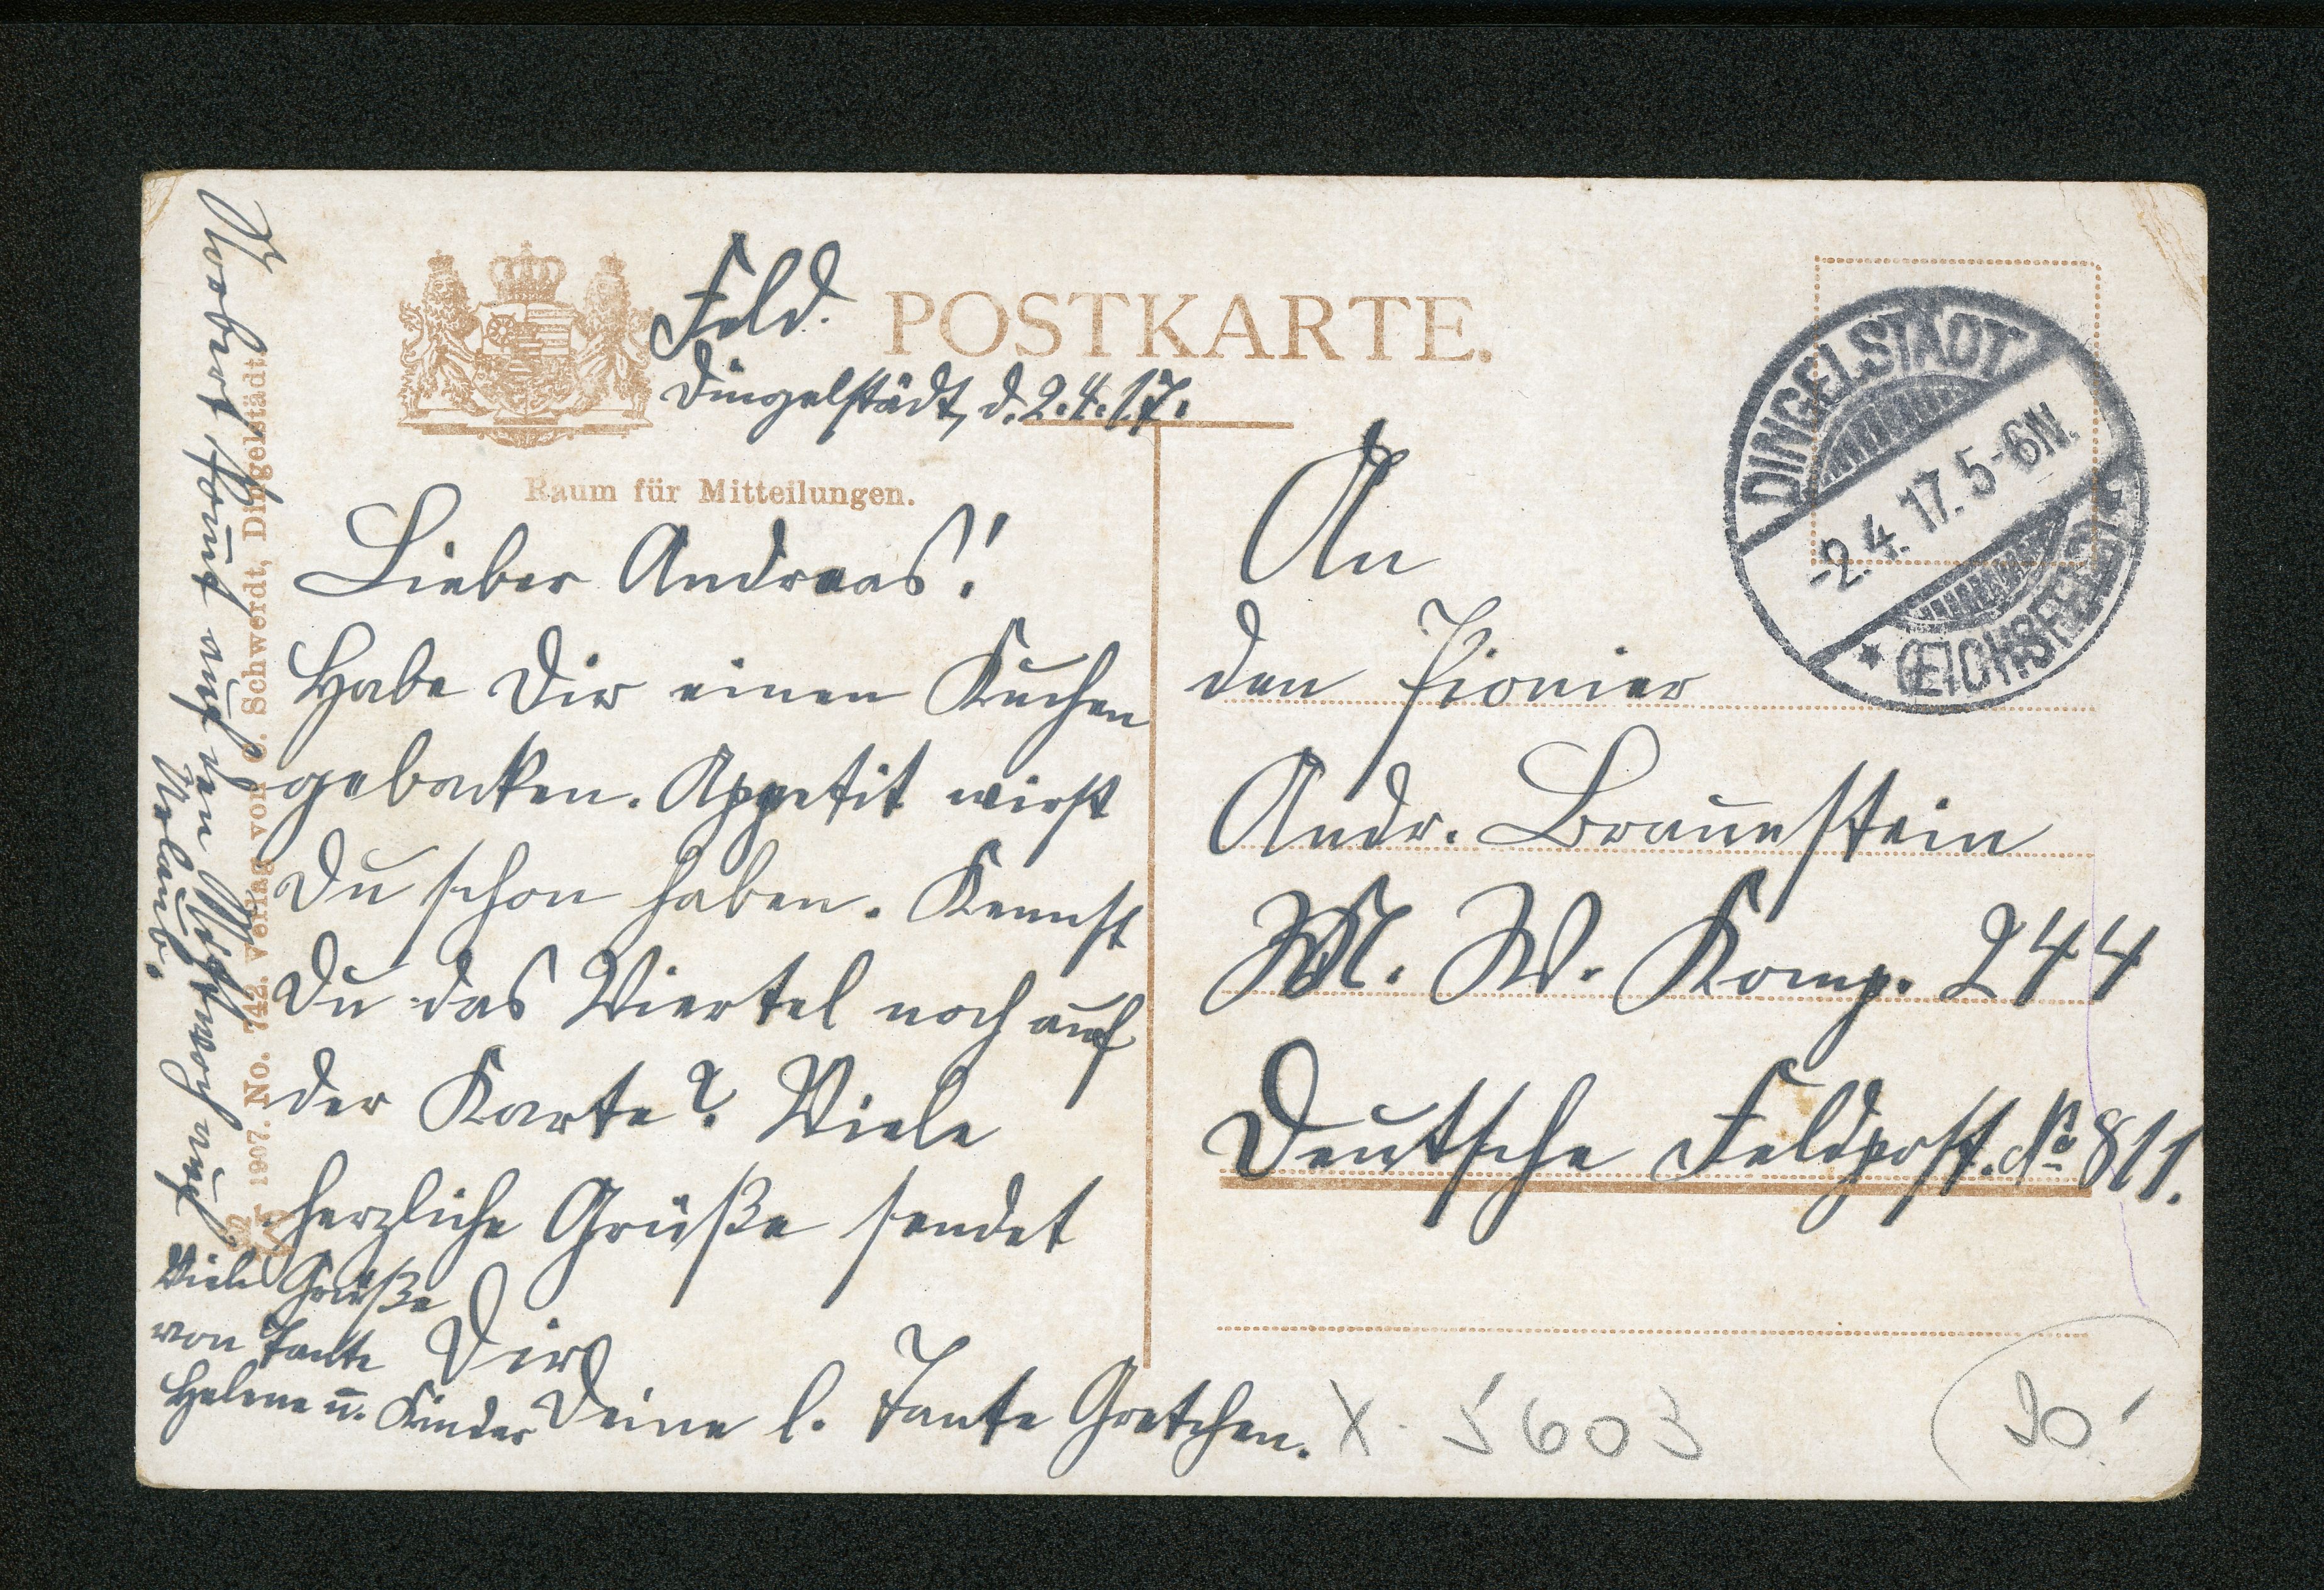 Feld.
POSTKARTE.
Dingelstädt, d. 2.4.17.
Raum für Mitteilungen.
Lieber Andreas!
Habe Dir einen Kuchen
gebacken. Appetit wirst
Du schon haben. Kennst
Du das Viertel noch auf
der Karte? Viele
herzliche Grüße sendet
Dir
Deine l. Tante Gretchen.
Viele Grüße
von Tante
Helene u. Kinder
auf den Mittwoch auf
Urlaub.
1907. No. 742. Verlag von C. Schwerdt, Dingelstädt.
DINGELSTÄDT
-2.4.17.5-6N.
* (EICHSFELD)
An
den Pionier
Andr. Braunstein
M. W. Komp. 244
Deutsche Feldpost. No 811.
X. 5603